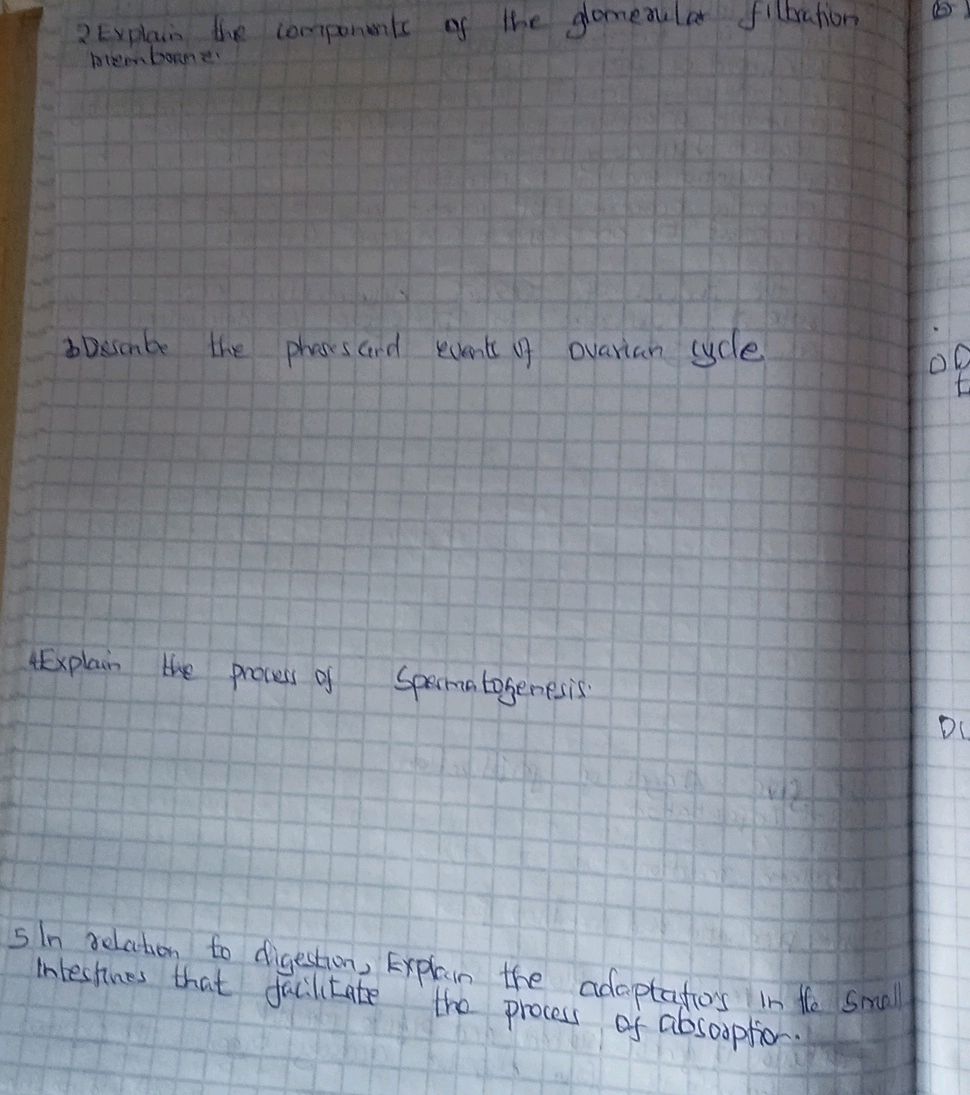 2 Explain the components of the glomerular filtration
membrane.
3 Describe the phases and events of ovarian cycle
4 Explain the process of Spermatogenesis.
5 In relation to digestion, Explain the adaptations in the small
intestines that facilitate the process of absorption.